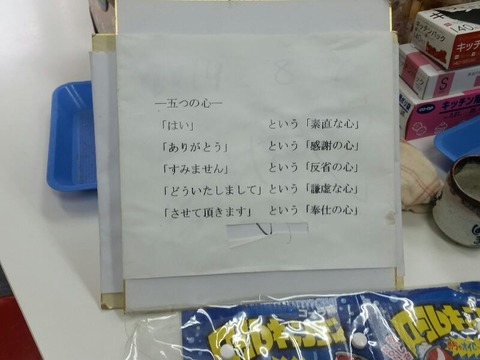 ―五つの心―
「はい」 という「素直な心」
「ありがとう」 という「感謝の心」
「すみません」 という「反省の心」
「どういたしまして」という「謙虚な心」
「させて頂きます」 という「奉仕の心」
キッチンパック
140
キッチン
S
キッチン
ロールキ